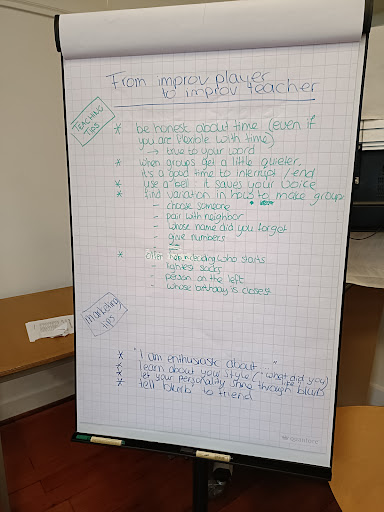 From improv player
to improv teacher
TEACHING
TIPS
* be honest about time (even if
you are flexible with time)
→ true to your word
* when groups get a little quieter.
its a good time to interrupt / end
* use a bell it saves your voice
* find variation in how to make groups
- choose someone
- pair with neighbor
- whose name did you forget
- give numbers
* offer help in deciding who starts
- lightest socks
- person on the left
- whose birthday is closest
marketing
tips
* "I am enthusiastic about ... "
* learn about your style ("what did you
* let your personality shine through blurb
* tell "blurb" to friend